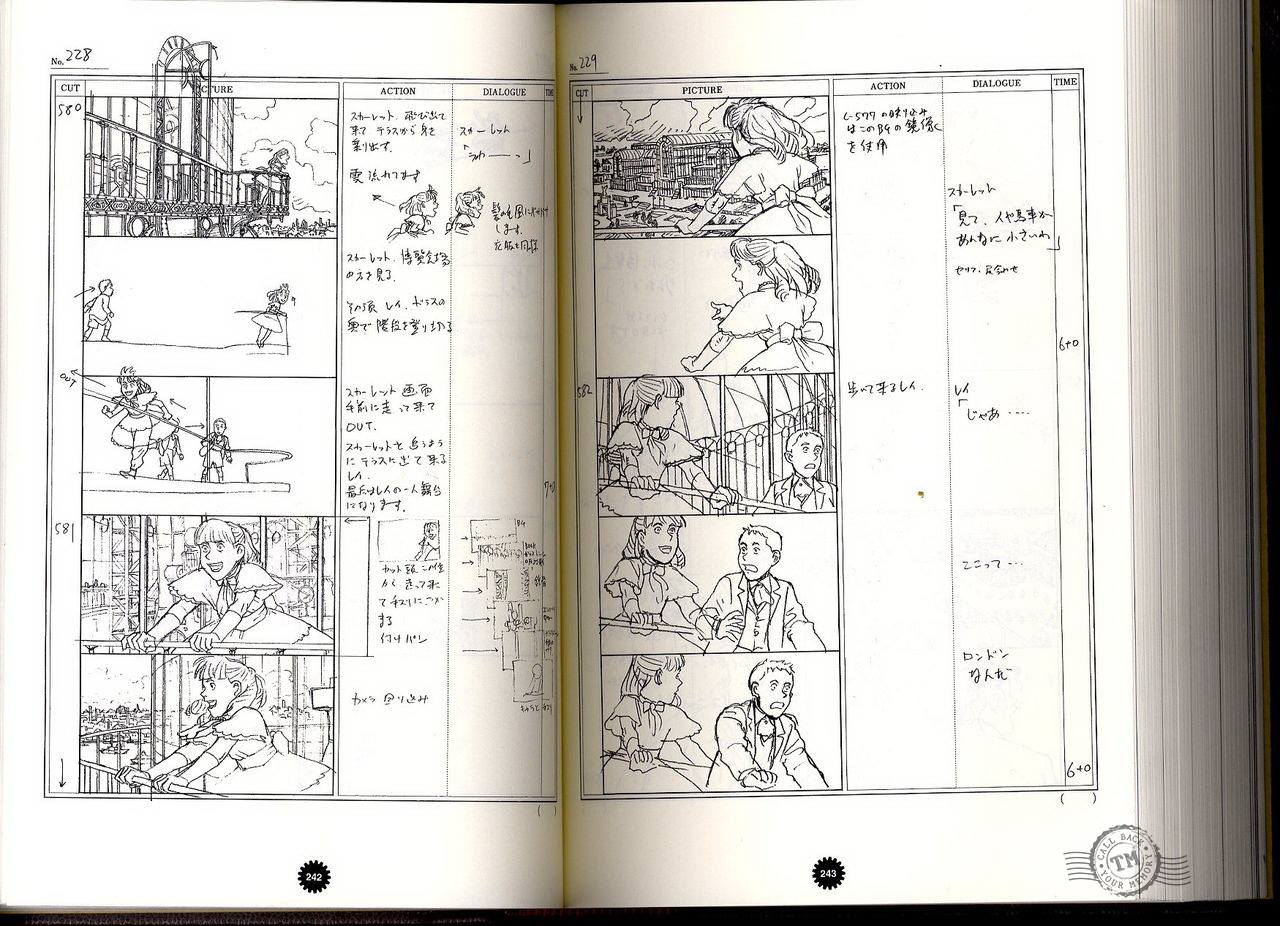 No. 228
CUT
PICTURE
ACTION
DIALOGUE
TIME
580
スカーレット 飛び出て
来て テラスから 身を
乗り出す.
スカーレット
「うわーーっ」
雲 流れてます
します.
スカーレット、博覧会場
の方を見る.
その頃 レイ、テラスの
奥で 階段を登り切る
OUT
スカーレット 画面
手前に走って来て
OUT.
スカーレットを追うよう
にテラスに出て来る
レイ.
最后はレイの一人舞台
になります.
7+0
581
BG
BOOK
から 走って来
て手スリに
まる
付けパン
カメラ 回り込み
( )
242
No. 229
CUT
PICTURE
ACTION
DIALOGUE
TIME
C-577 の映り込み
はこのBGの鏡像
を使用
スカーレット
「見て、人や馬車が
あんなに小さいわ」
セリフ、尺合わせ
6+0
582
歩いて来るレイ.
レイ
「じゃあ‥‥
ここって‥
ロンドン
なんだ
6+0
( )
243
CALL BACK
TM
YOUR MEMORY